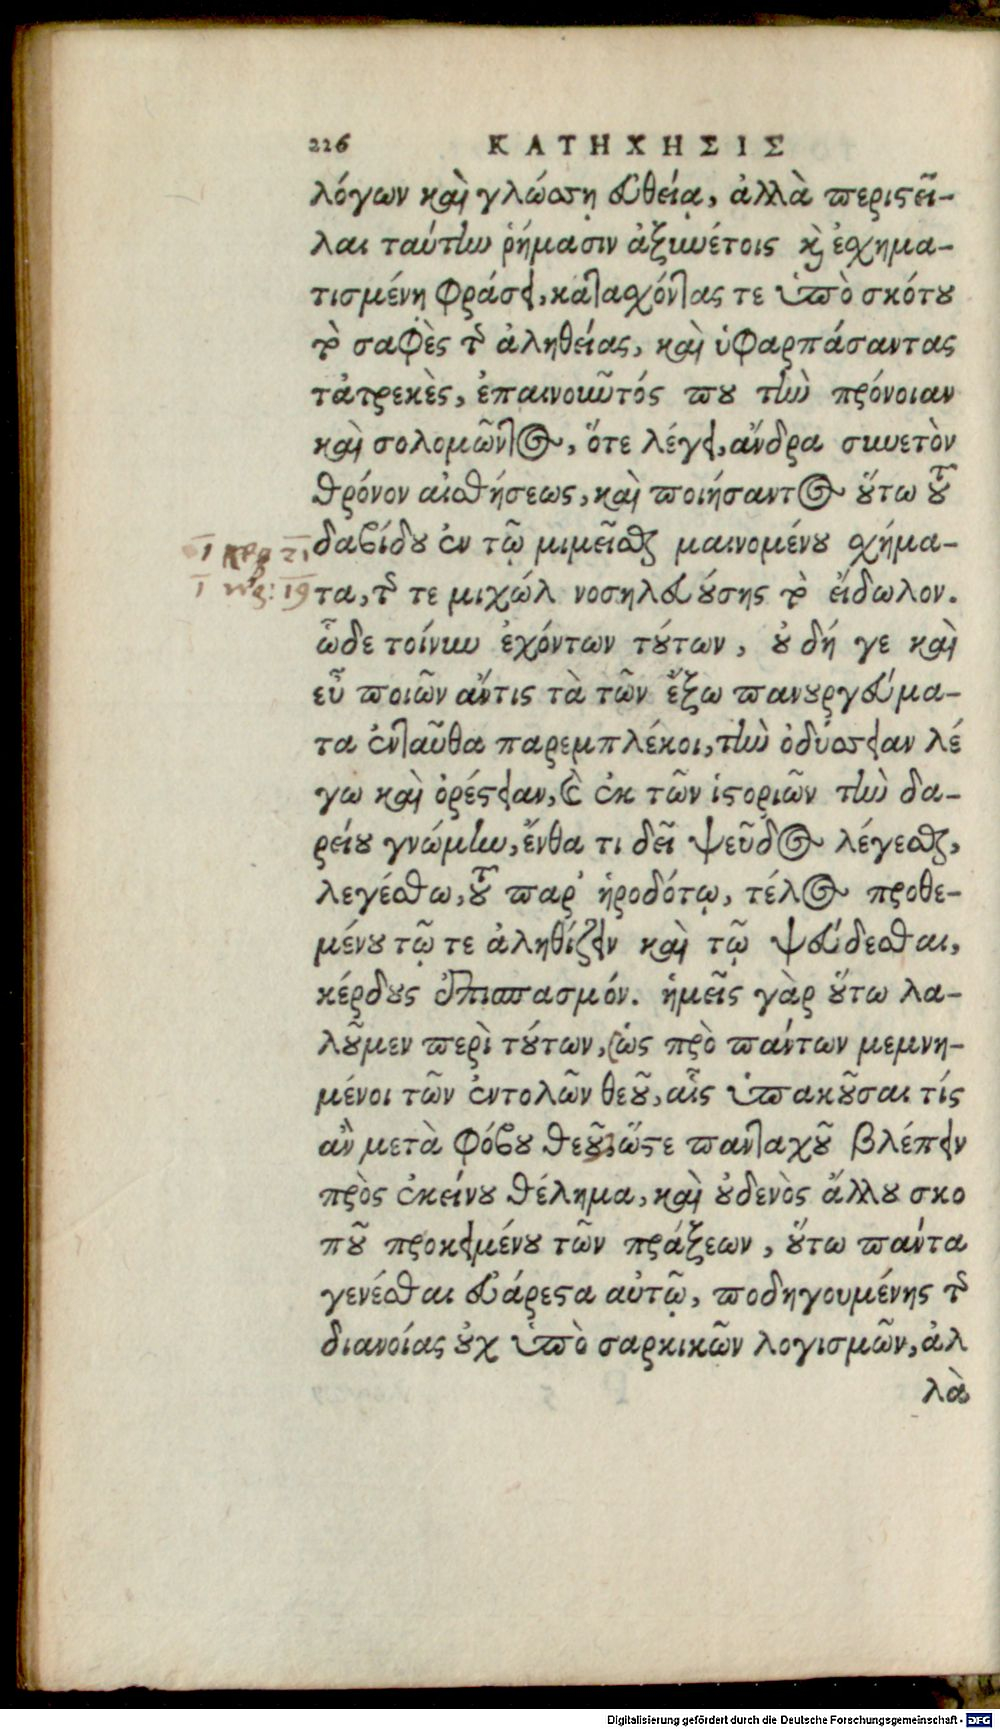 226 ΚΑΤΗΧΗΣΙΣ
λόγων καὶ γλώσσῃ εὐθείᾳ, ἀλλὰ περιστεῖ-
λαι ταύτην ῥήμασιν ἀξυνέτοις καὶ ἐσχημα-
τισμένῃ φράσει, κατασχόντας τε ὑπὸ σκότου
τὸ σαφὲς τῆς ἀληθείας, καὶ ὑφαρπάσαντας
τἀτρεκὲς, ἐπαινοῦντός που τὴν πρόνοιαν
καὶ σολομῶντος, ὅτε λέγει, ἄνδρα συνετὸν
θρόνον αἰσθήσεως, καὶ ποιήσαντος οὕτω τοῦ
δαβίδου ἐν τῷ μιμεῖσθαι μαινομένου σχήμα-
1 21
1 19
τα, τῆς τε μιχώλ νοσηλευούσης τὸ εἴδωλον.
ὧδε τοίνυν ἐχόντων τούτων, οὐ δή γε καὶ
εὖ ποιῶν ἄντις τὰ τῶν ἔξω πανουργεύμα-
τα ἐνταῦθα παρεμπλέκοι, τὴν ὀδύσσειαν λέ
γω καὶ ὀρέστειαν, καὶ ἐκ τῶν ἱστοριῶν τὴν δα-
ρείου γνώμην, ἔνθα τι δεῖ ψεῦδος λέγεσθαι,
λεγέσθω, τοῦ παρ' ἡροδότῳ, τέλος προθε-
μένου τῷ τε ἀληθίζειν καὶ τῷ ψεύδεσθαι,
κέρδους ἐπισπασμόν. ἡμεῖς γὰρ οὕτω λα-
λοῦμεν περὶ τούτων, ὡς πρὸ πάντων μεμνη-
μένοι τῶν ἐντολῶν θεοῦ, αἷς ὑπακοῦσαι τίς
ἂν μετὰ φόβου θεοῦ, ὥστε πανταχοῦ βλέπειν
πρὸς ἐκείνου θέλημα, καὶ οὐδενὸς ἄλλου σκο
ποῦ προκειμένου τῶν πράξεων, οὕτω πάντα
γενέσθαι εὐάρεστα αὐτῷ, ποδηγουμένης τῆς
διανοίας οὐχ ὑπὸ σαρκικῶν λογισμῶν, ἀλ
λὰ
Digitalisierung gefördert durch die Deutsche Forschungsgemeinschaft - DFG